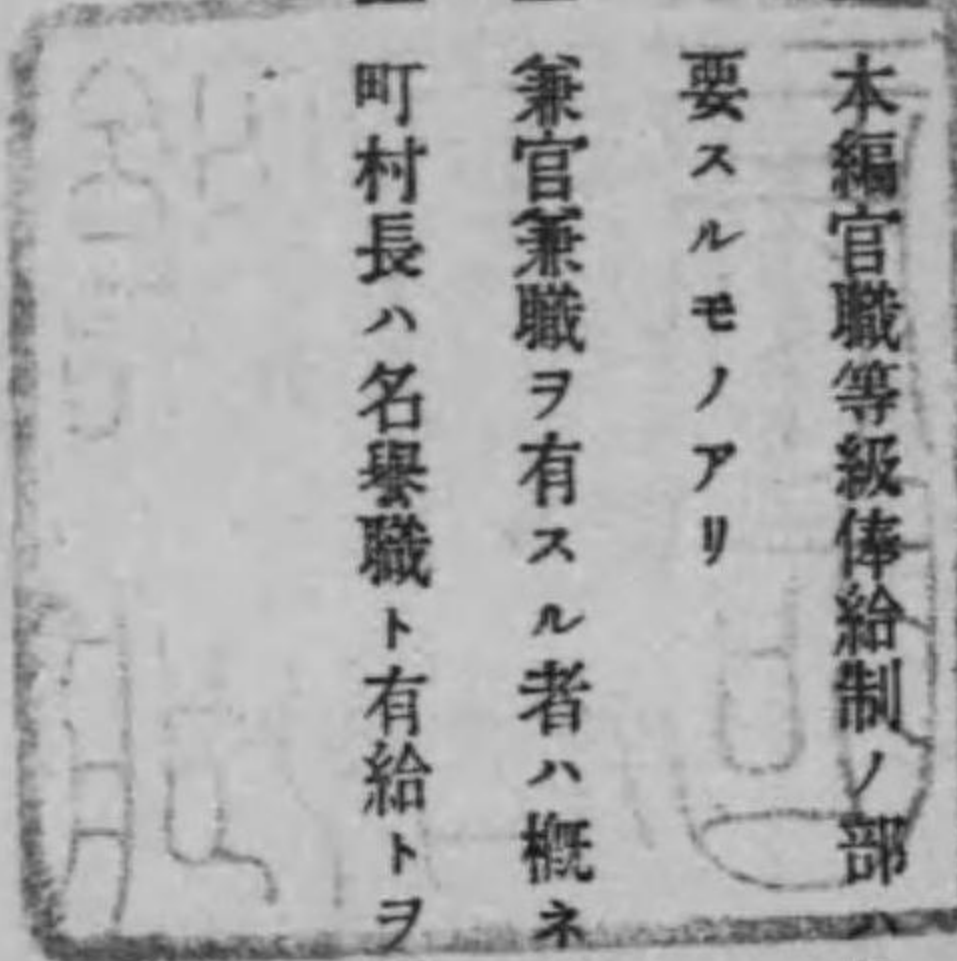 本編官職等級俸給制ノ部ハ
要スルモノアリ
兼官兼職ヲ有スル者ハ概ネ
町村長ハ名譽職ト有給トヲ